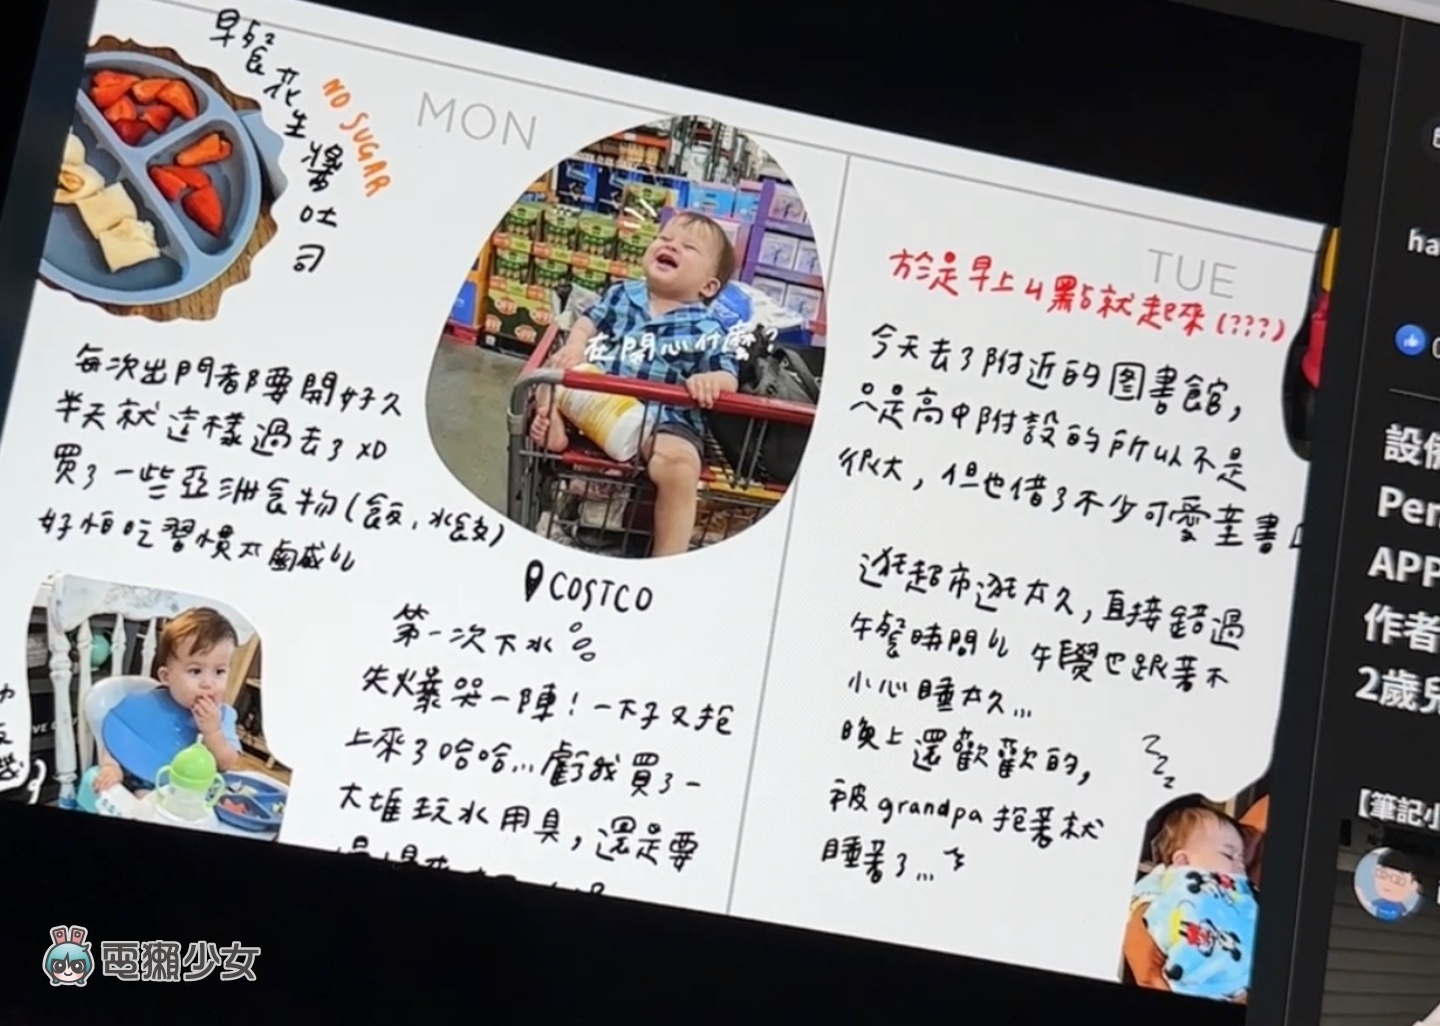 早餐花生醬吐司
NO SUGAR
MON
在開心什麼?
每次出門都要開好久
半天就這樣過去了 XD
買了一些亞洲食物(飯,水餃)
好怕吃習慣太鹹
COSTCO
第一次下水
失火爆哭一陣!一下子又抱
上來了哈哈...虧我買了一
大堆玩水用具,還是要
TUE
於是早上4點就起來(???)
今天去了附近的圖書館,
只是高中附設的所以不是
很大,但也借了不少可愛童書
逛超市逛太久,直接錯過
午餐時間 午覺也跟著不
小心睡太久...
晚上還歡歡的,
被grandpa抱著就
睡著了...
電獺少女
ha
設
Pen
APP
作者
2歲兒
【筆記小